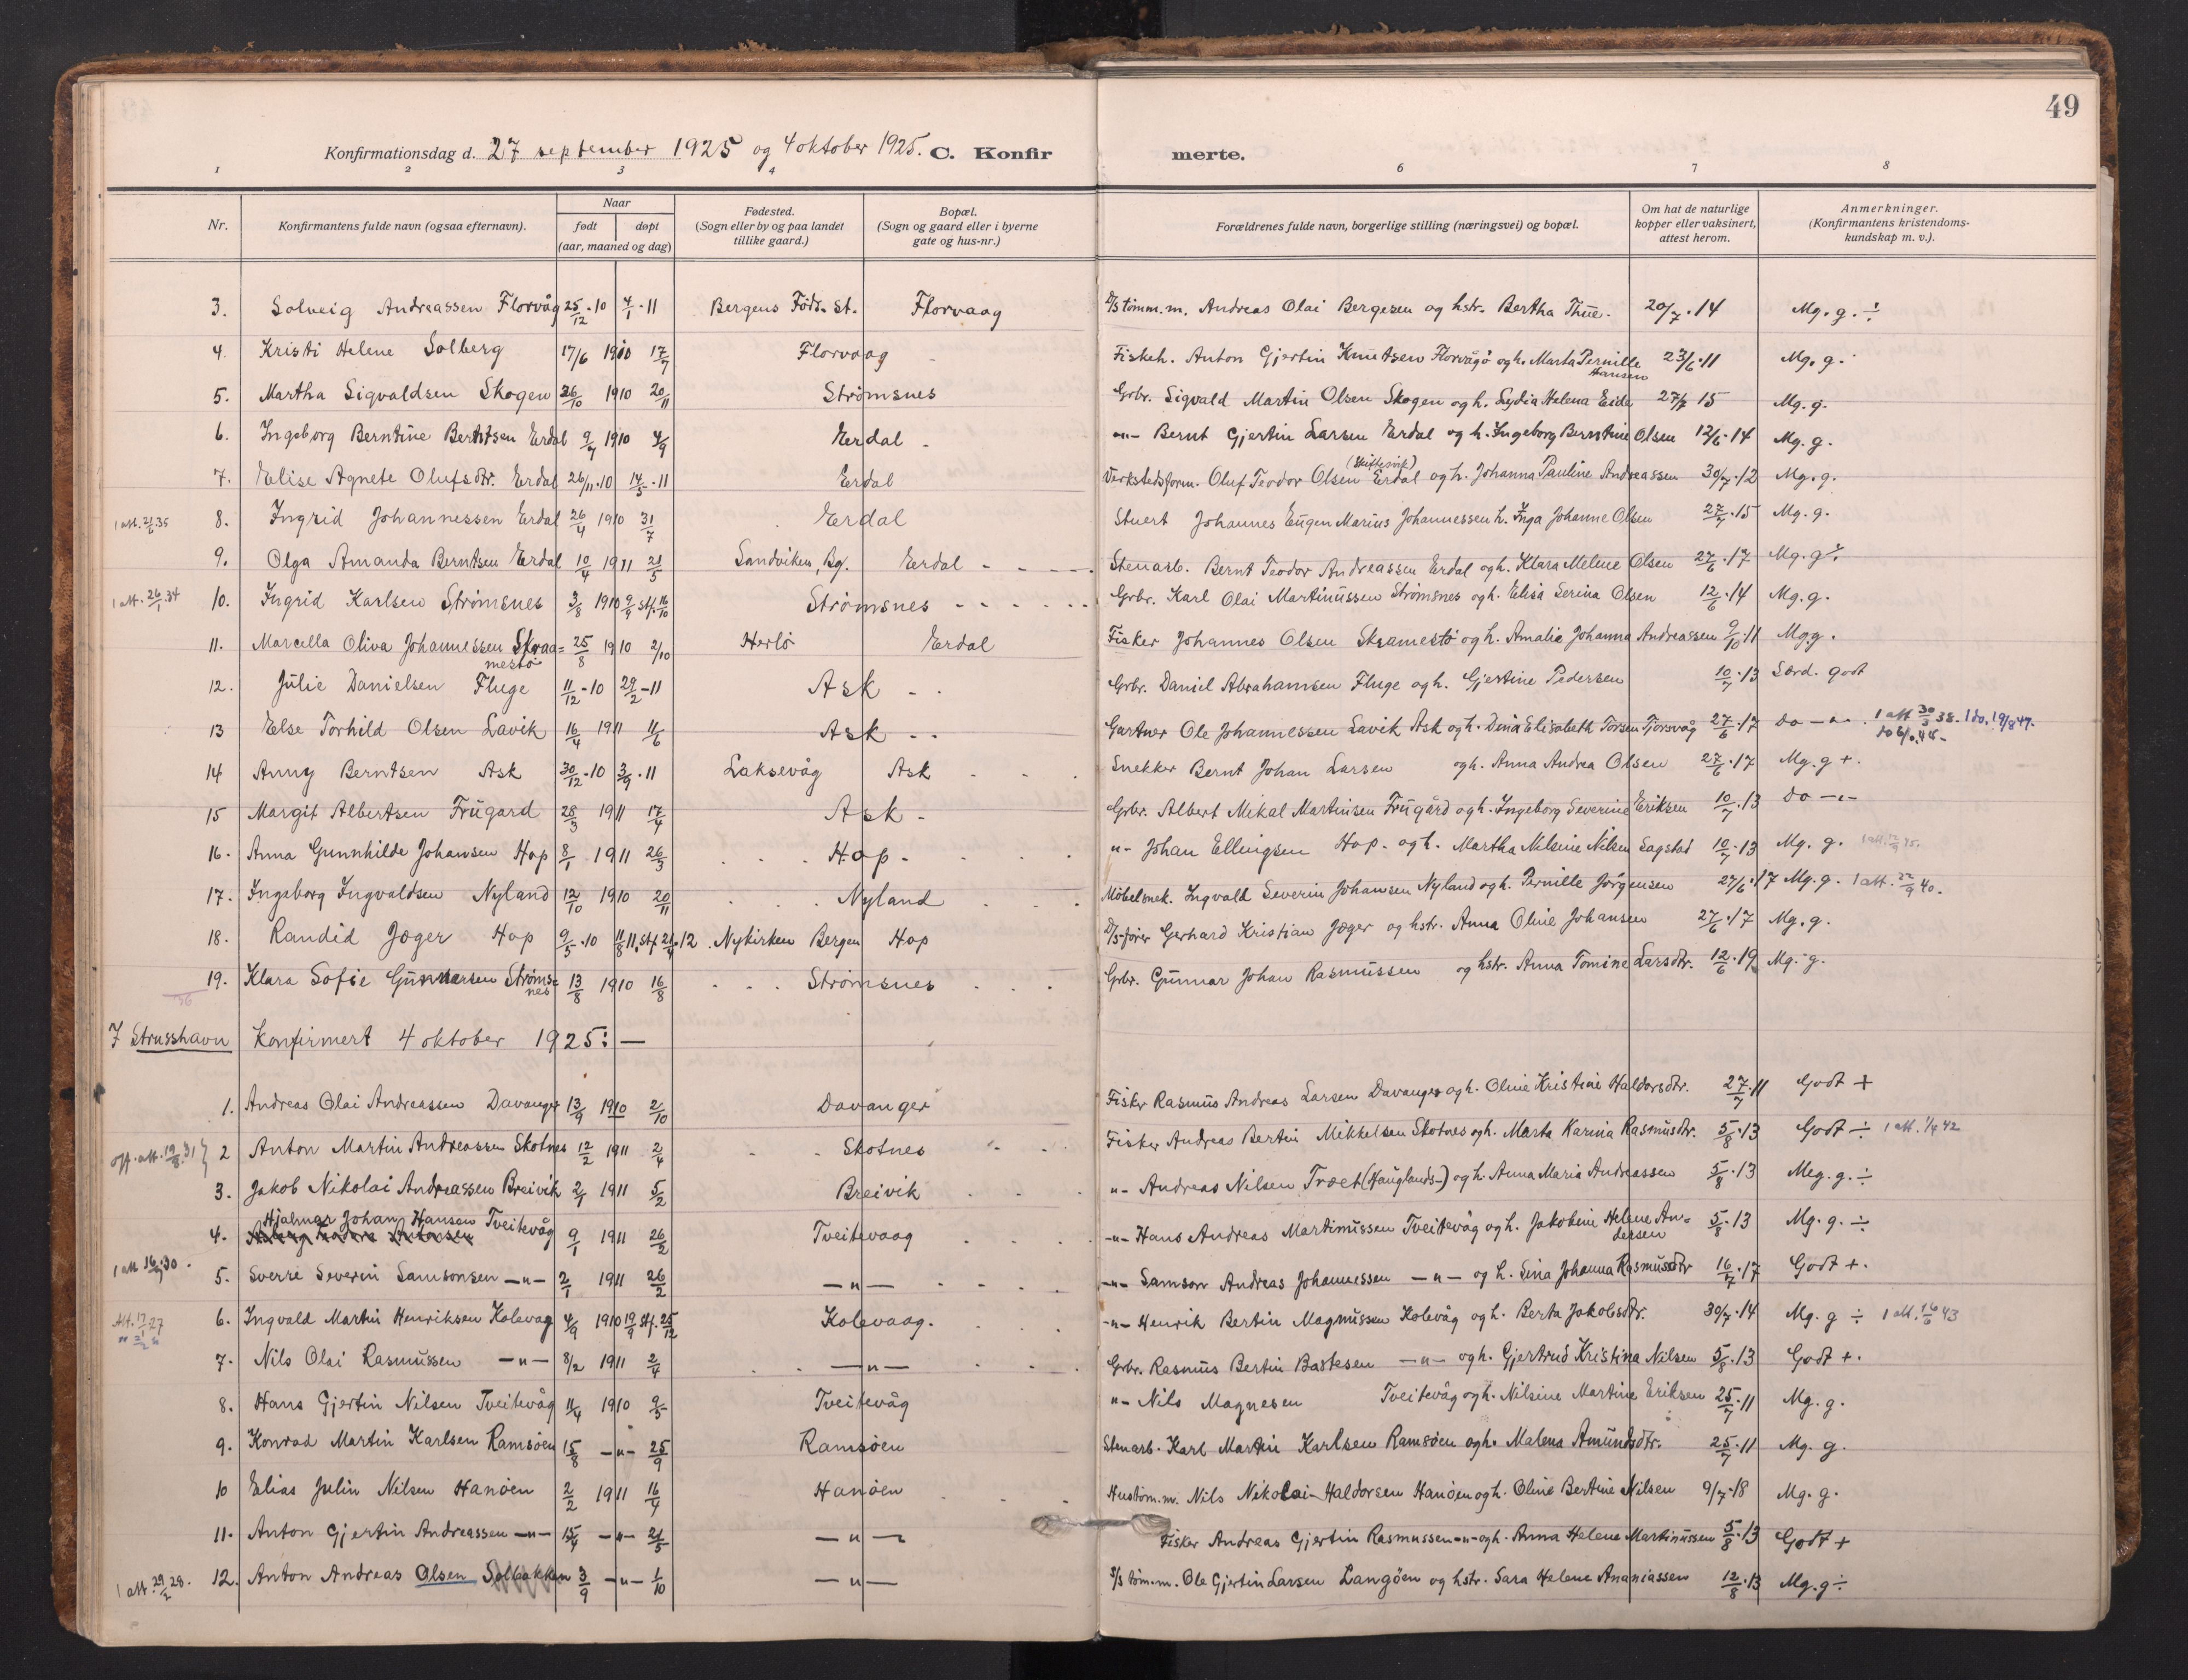 49
Konfirmationsdag d. 27 september 1925 og 4 oktober 1925. C. Konfirmerte.
1 2 3 4 6 7 8
Nr. Konfirmantens fulde navn (ogsaa efternavn). Naar født døpt (aar, maaned og dag) Fødested. (Sogn eller by og paa landet tillike gaard.) Bopæl. (Sogn og gaard eller i byerne gate og hus-nr.) Forældrenes fulde navn, borgerlige stilling (næringsvei) og bopæl. Om hat de naturlige kopper eller vaksinert, attest herom. Anmerkninger. (Konfirmantens kristendoms-kundskap m. v.).
3. Solveig Andreassen Florvåg 25/12·10 4/1·11 Bergens Föds. st. Florvaag D/s tömm.m. Andreas Olai Bergesen og hstr. Bertha Thue. 20/7·14 Mg. g. ÷
4. Kristi Helene Solberg 17/6 1910 17/7 Florvaag Fiskeh. Anton Gjertin Knutsen Florvågö og h. Marta Pernille Hansen 23/6·11 Mg. g.
5. Martha Sigvaldsen Skogen 26/10 1910 20/11 Strømsnes Grbr. Sigvald Martin Olsen Skogen og h. Lydia Helena Eide 27/7 15 Mg. g.
6. Ingeborg Berntine Berntsen Erdal 9/7 1910 4/9 Erdal - -"- Bernt Gjertin Larsen Erdal og h. Ingeborg Berntine Olsen 12/6·14 Mg. g.
7. Elise Agnete Olufsdtr. Erdal 26/11·10 14/5·11 Erdal Verkstedsform. Oluf Teodor Olsen (Skiftesvik) Erdal og h. Johanna Pauline Andreassen 30/7·12 Mg. g.
1 att. 21/6 35 8. Ingrid Johannessen Erdal 26/4 1910 31/7 Erdal Stuert Johannes Eugen Marius Johannessen h. Inga Johanne Olsen 27/7·15 Mg. g.
9. Olga Amanda Berntsen Erdal 10/4 1911 21/5 Sandviken, Bg. Erdal Stenarb. Bernt Teodor Andreassen Erdal og h. Klara Melene Olsen 27/6·17 Mg. g ÷
1 att. 26/1·34 10. Ingrid Karlsen Strømsnes 3/8 1910 9/9 stf. 16/10 Strømsnes Grbr. Karl Olai Martinussen Strømsnes og h. Elisa Serina Olsen 12/6·14 Mg. g.
11. Marcella Oliva Johannessen Skraamestö 25/8 1910 2/10 Herlö Erdal Fisker Johannes Olsen Skramestö og h. Amalie Johanna Andreassen 9/10·11 Mg g.
12. Julie Danielsen Fluge 11/12-10 29/2-11 Ask Grbr. Daniel Abrahamsen Fluge og h. Gjertine Pedersen 10/7·13 Særd. godt
13 Else Torhild Olsen Lavik 16/4 1911 11/6 Ask Gartner Ole Johannessen Lavik Ask og h. Dina Elisabeth Torsen Tjorsvåg 27/6·17 do -"- 1 att 30/3 38. 1 do. 19/8 47.
14 Anny Berntsen Ask 30/12·10 3/9·11 Laksevåg Ask Snekker Bernt Johan Larsen og h. Anna Andrea Olsen 27/6·17 Mg. g +.
15 Margit Albertsen Frugard 28/3 1911 17/4 Ask - Grbr. Albert Mikal Martinsen Frugård og h. Ingeborg Severine Eriksen 10/7·13 do -"-
16. Anna Gunnhilde Johansen Hop 8/1 1911 26/3 Hop - "- Johan Ellingsen Hop - og h. Martha Nilsine Nilsen Sagstad 10/7·13 Mg. g.
17. Ingeborg Ingvaldsen Nyland 12/10 1910 20/11 Nyland Möbelsnek. Ingvald Severin Johansen Nyland og h. Pernille Jörgensen 27/6·17 Mg. g. 1 att. 22/9 40.
18. Randid Jæger Hop 9/5·10 11/8 11, stf. 21/4·12 Nykirken Bergen Hop D/s-förer Gerhard Kristian Jæger og hstr. Anna Oline Johansen 27/6·17 Mg. g.
19. Klara Sofie Gunnarsen Strømsnes 13/8 1910 16/8 Strømsnes Grbr. Gunnar Johan Rasmussen og hstr. Anna Tomine Larsdtr. 12/6·19 Mg. g.
I Strusshavn Konfirmert 4 oktober 1925: —
1. Andreas Olai Andreassen Davanger 13/9 1910 2/10 Davanger Fisker Rasmus Andreas Larsen Davanger og h. Oline Kristine Haldorsdtr. 27/7·11 Godt +
off. att. 19/8·31 2 Anton Martin Andreassen Skotnes 12/2 1911 2/4 Skotnes Fisker Andreas Bertin Mikkelsen Skotnes og h. Marta Karina Rasmusdtr. 5/8·13 Godt ÷ 1 att. 1/4 42
3. Jakob Nikolai Andreassen Breivik 2/1 1911 5/2 Breivik "- Andreas Nilsen Træet (Hauglands-) og h. Anna Maria Andreassen 5/8·13 Meg. g. ÷
4. Hjalmar Johan Hansen Tveitevåg 9/1 1911 26/2 Tveitevaag -"- Hans Andreas Martinussen Tveitevåg og h. Jakobine Helene Andersen 5/8·13 Mg. g. ÷
1 att 16/7·30. 5. Sverre Severin Samsonsen -"- 2/1 1911 26/2 -"- -"- Samson Andreas Johannessen -"- og h. Sina Johanna Rasmusdtr 16/7·17 Godt +.
Att. 17/1 27 6. Ingvald Martin Henriksen Kolevag 4/9 1910 19/9 stf. 25/12 Kolevaag. -"- Henrik Bertin Magnussen Kolevåg og h. Berta Jakobsdtr. 30/7·14 Mg. g ÷ 1 att. 16/6 43
7. Nils Olai Rasmussen -"- 8/2 1911 2/4 -"- Grbr. Rasmus Bertin Bastesen -"- og h. Gjertrud Kristina Nilsen 5/8·13 Godt +.
8. Hans Gjertin Nilsen Tveitevåg 11/4 1910 9/5 Tveitevåg "- Nils Magnesen Tveitevåg og h. Nilsine Martine Eriksen 25/7·11 Mg. g.
9. Konrad Martin Karlsen Ramsöen 15/8 -"- 25/9 Ramsöen Stenarb. Karl Martin Karlsen Ramsöen og h. Malena Amundsdtr. 25/7·11 Mg. g.
10 Elias Julin Nilsen Hanöen 2/2 1911 16/4 Hanöen Hustöm.m. Nils Nikolai Haldorsen Hanöen og h. Oline Bertine Nilsen 9/7·18 Mg. g.
11. Anton Gjertin Andreassen -"- 15/4 -"- 21/5 -"- Fisker Andreas Gjertin Rasmussen -"- og h. Anna Helene Martinussen 5/8·13 Godt +
1 att. 29/2 28. 12. Anton Andreas Olsen Solbakken 3/9 -"- 1/10 -"- S/s töm.m. Ole Gjertin Larsen Langöen og hstr. Sara Helene Ananiassen 12/8·13 Mg. g ÷